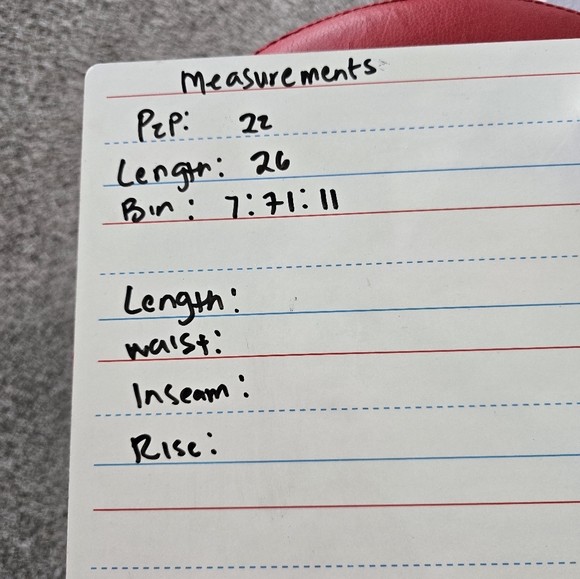 Measurements
P2P: 22
Length: 26
Bin: 7:71:11
Length:
Waist:
Inseam:
Rise: